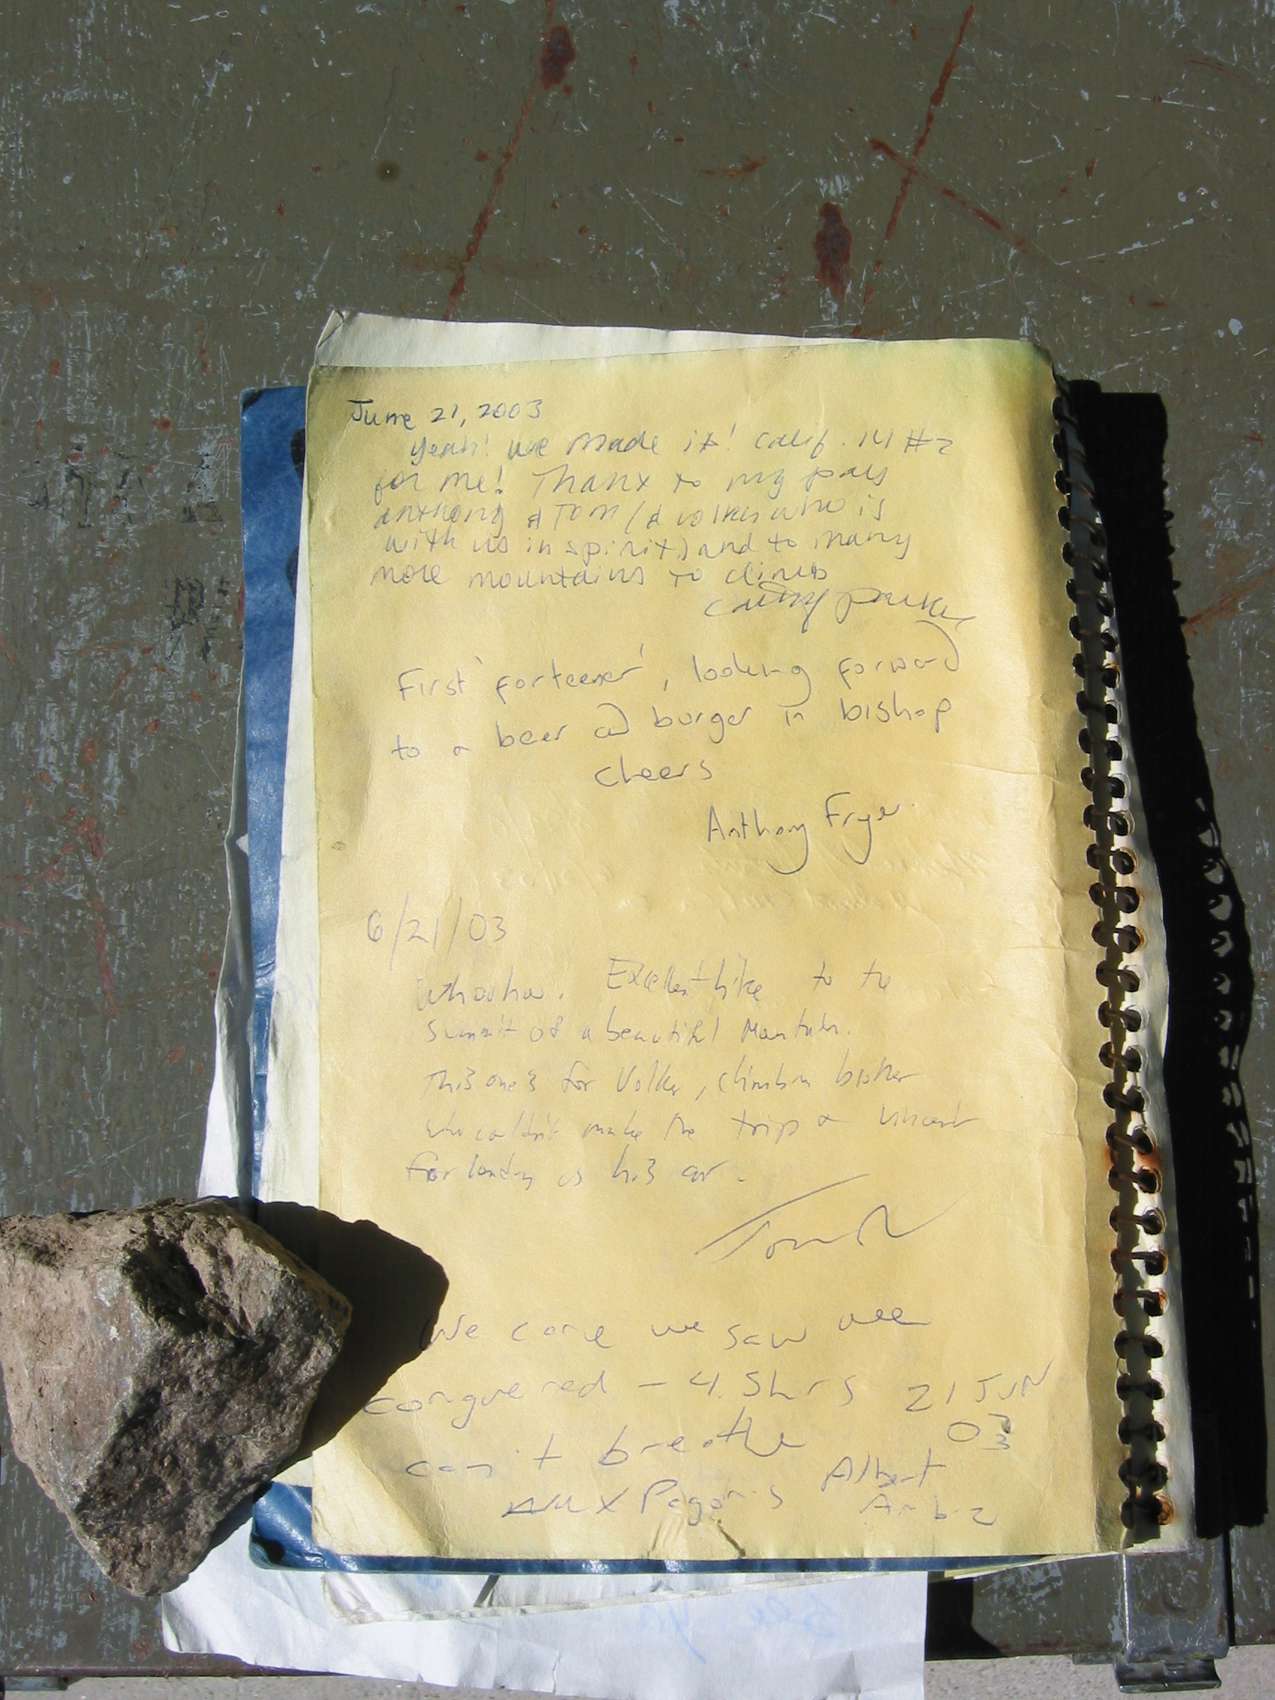 June 21, 2003
Yeah! we made it! Calif. 14 #2
for me! Thanx to my pals
anthony & Tom (& volker who is
with us in spirit) and to many
more mountains to climb
Cathy
First 'forteener', looking forward
to a beer and burger in bishop
cheers
Anthony Frye
6/21/03
Excellent hike to the
summit of a beautiful Mountain.
This one's for Volker, climbin
who couldn't make the trip &
for us his car.
Tom
We came we saw wee
conquered - 4.5hrs 21 JUN
03
can't breathe
Albert